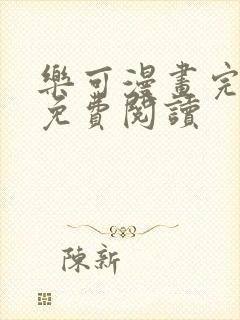 樂可漫畫完
免費閱讀
陳新